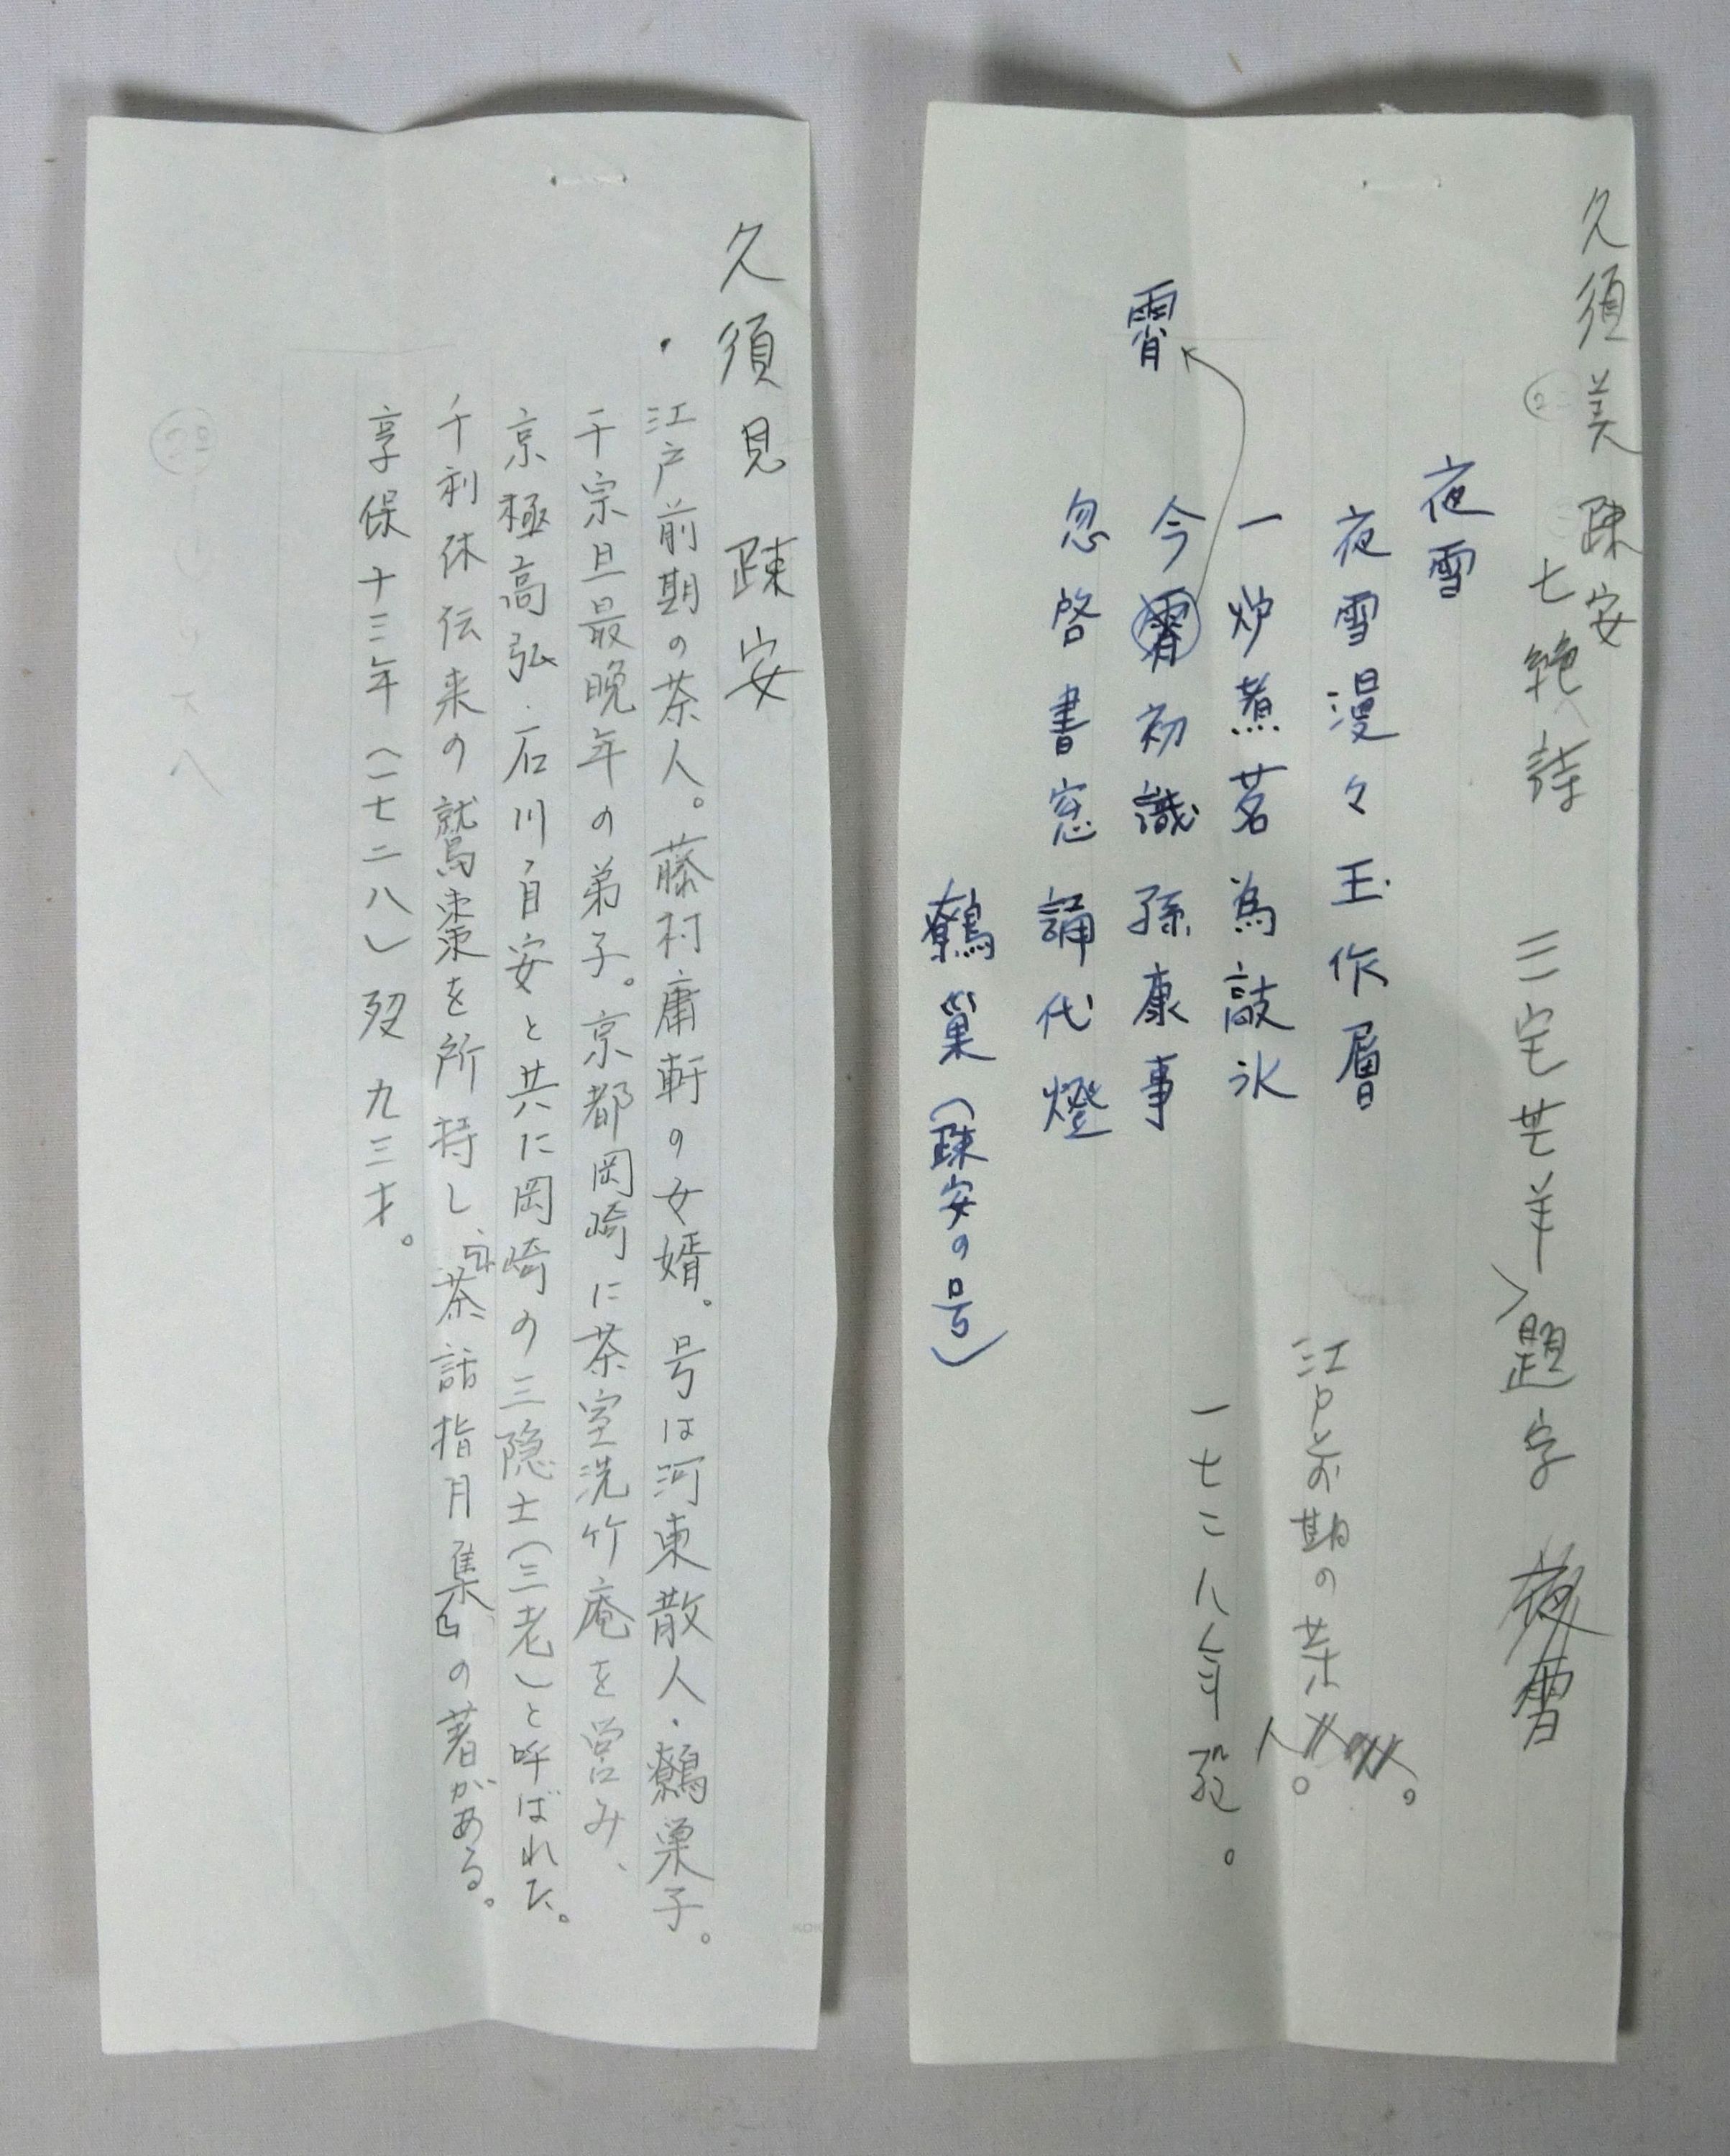 久須美疎安
七絶詩 三宅芒羊 題字 夜雪
夜雪
夜雪漫々玉作層
一炉煮茗為敲氷
今霄初識孫康事
霄
忽啓書窓誦代燈
鷯巣(疎安の号)
江戸前期の茶人。
一七二八年歿。
久須見疎安
・江戸前期の茶人。藤村庸軒の女婿。号は河東散人・鷯巣子。
千宗旦最晩年の弟子。京都岡崎に茶室洗竹庵を営み、
京極高弘・石川自安と共に岡崎の三隠士(三老)と呼ばれた。
千利休伝来の鷲棗を所持し、『茶話指月集』の著がある。
享保十三年(一七二八)歿 九三才。